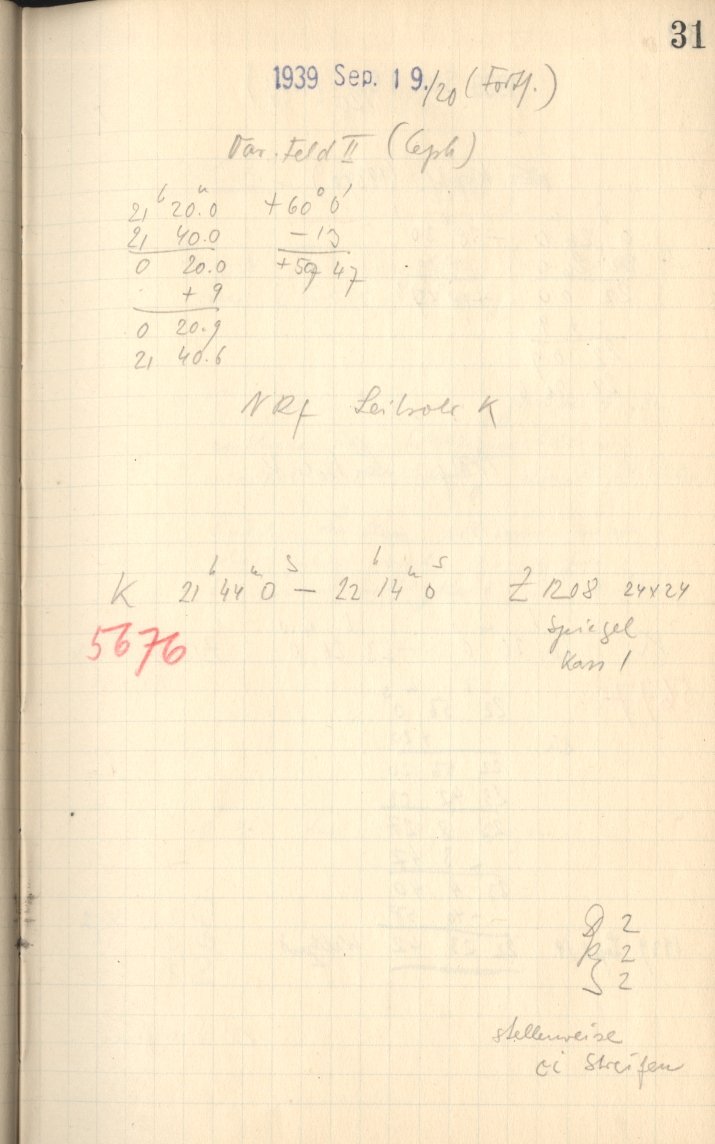 31
1939 Sep. 19./20 (Forts.)
Var. Feld II (Ceph)
21ʰ 20.0ᵐ +60° 0'
21 40.0 - 13
0 20.0 +59 47
+ 9
0 20.9
21 40.6
NRf Leitrohr K
K 21ʰ 44ᵐ 0ˢ – 22ʰ 14ᵐ 0ˢ Z 1208 24x24
5676 Spiegel
Kass 1
D 2
R 2
S 2
stellenweise
ci Streifen